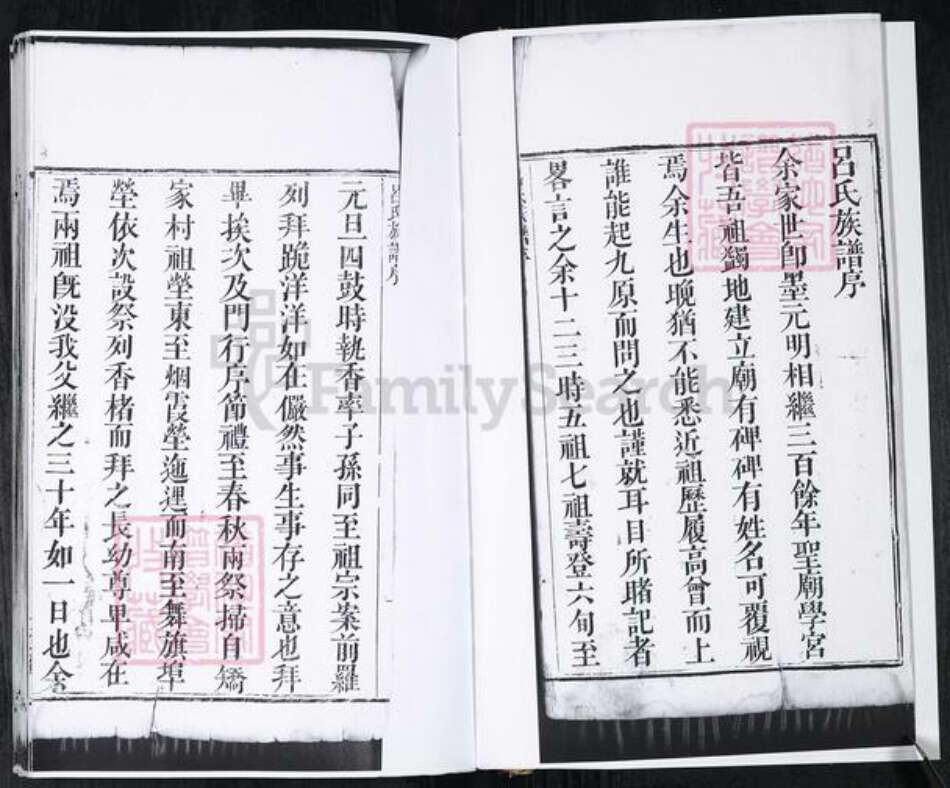 呂氏族譜序
余家世即墨元明相繼三百餘年聖廟學宮
皆吾祖蠲地建立廟有碑碑有姓名可覆視
焉余生也晚猶不能悉近祖歷履高曾而上
誰能起九原而問之也謹就耳目所睹記者
畧言之余十二三時五祖七祖壽登六旬至
呂氏族譜序
元旦四鼓時執香率子孫同至祖宗案前羅
列拜跪洋洋如在儼然事生事存之意也拜
畢挨次及門行序節禮至春秋兩祭掃自矯
家村祖塋東至烟霞塋迤邐而南至舞旗埠
塋依次設祭列香楮而拜之長幼尊卑咸在
焉兩祖旣没我父繼之三十年如一日也余
FamilySearch